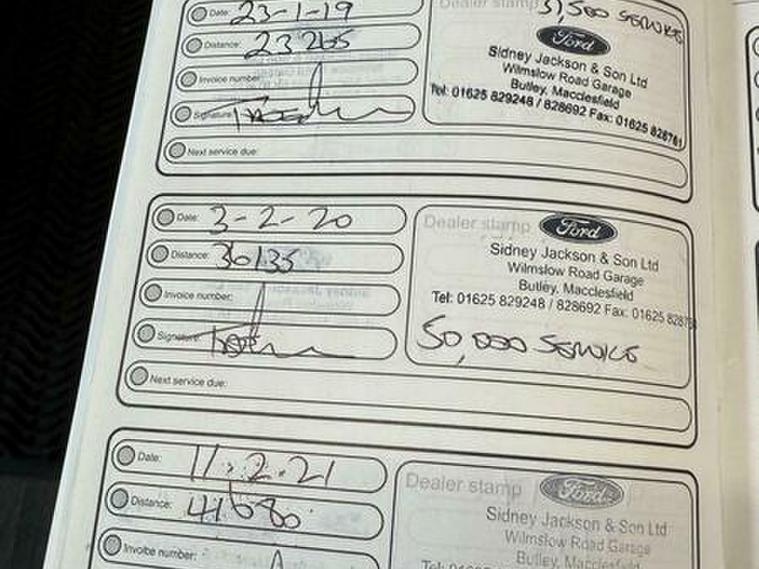 Date: 23-1-19
Distance: 23265
Invoice number:
Signature:
Next service due:
Dealer stamp 37,500 SERVICE
Ford
Sidney Jackson & Son Ltd
Wilmslow Road Garage
Butley, Macclesfield
Tel: 01625 829248 / 828692 Fax: 01625 828781
Date: 3-2-20
Distance: 36135
Invoice number:
Signature:
Next service due:
Dealer stamp
Ford
Sidney Jackson & Son Ltd
Wilmslow Road Garage
Butley, Macclesfield
Tel: 01625 829248 / 828692 Fax: 01625 8287
50,000 SERVICE
Date: 11.2.21
Distance: 41680
Invoice number:
Dealer stamp
Ford
Sidney Jackson & Son Ltd
Wilmslow Road Garage
Butley, Macclesfield